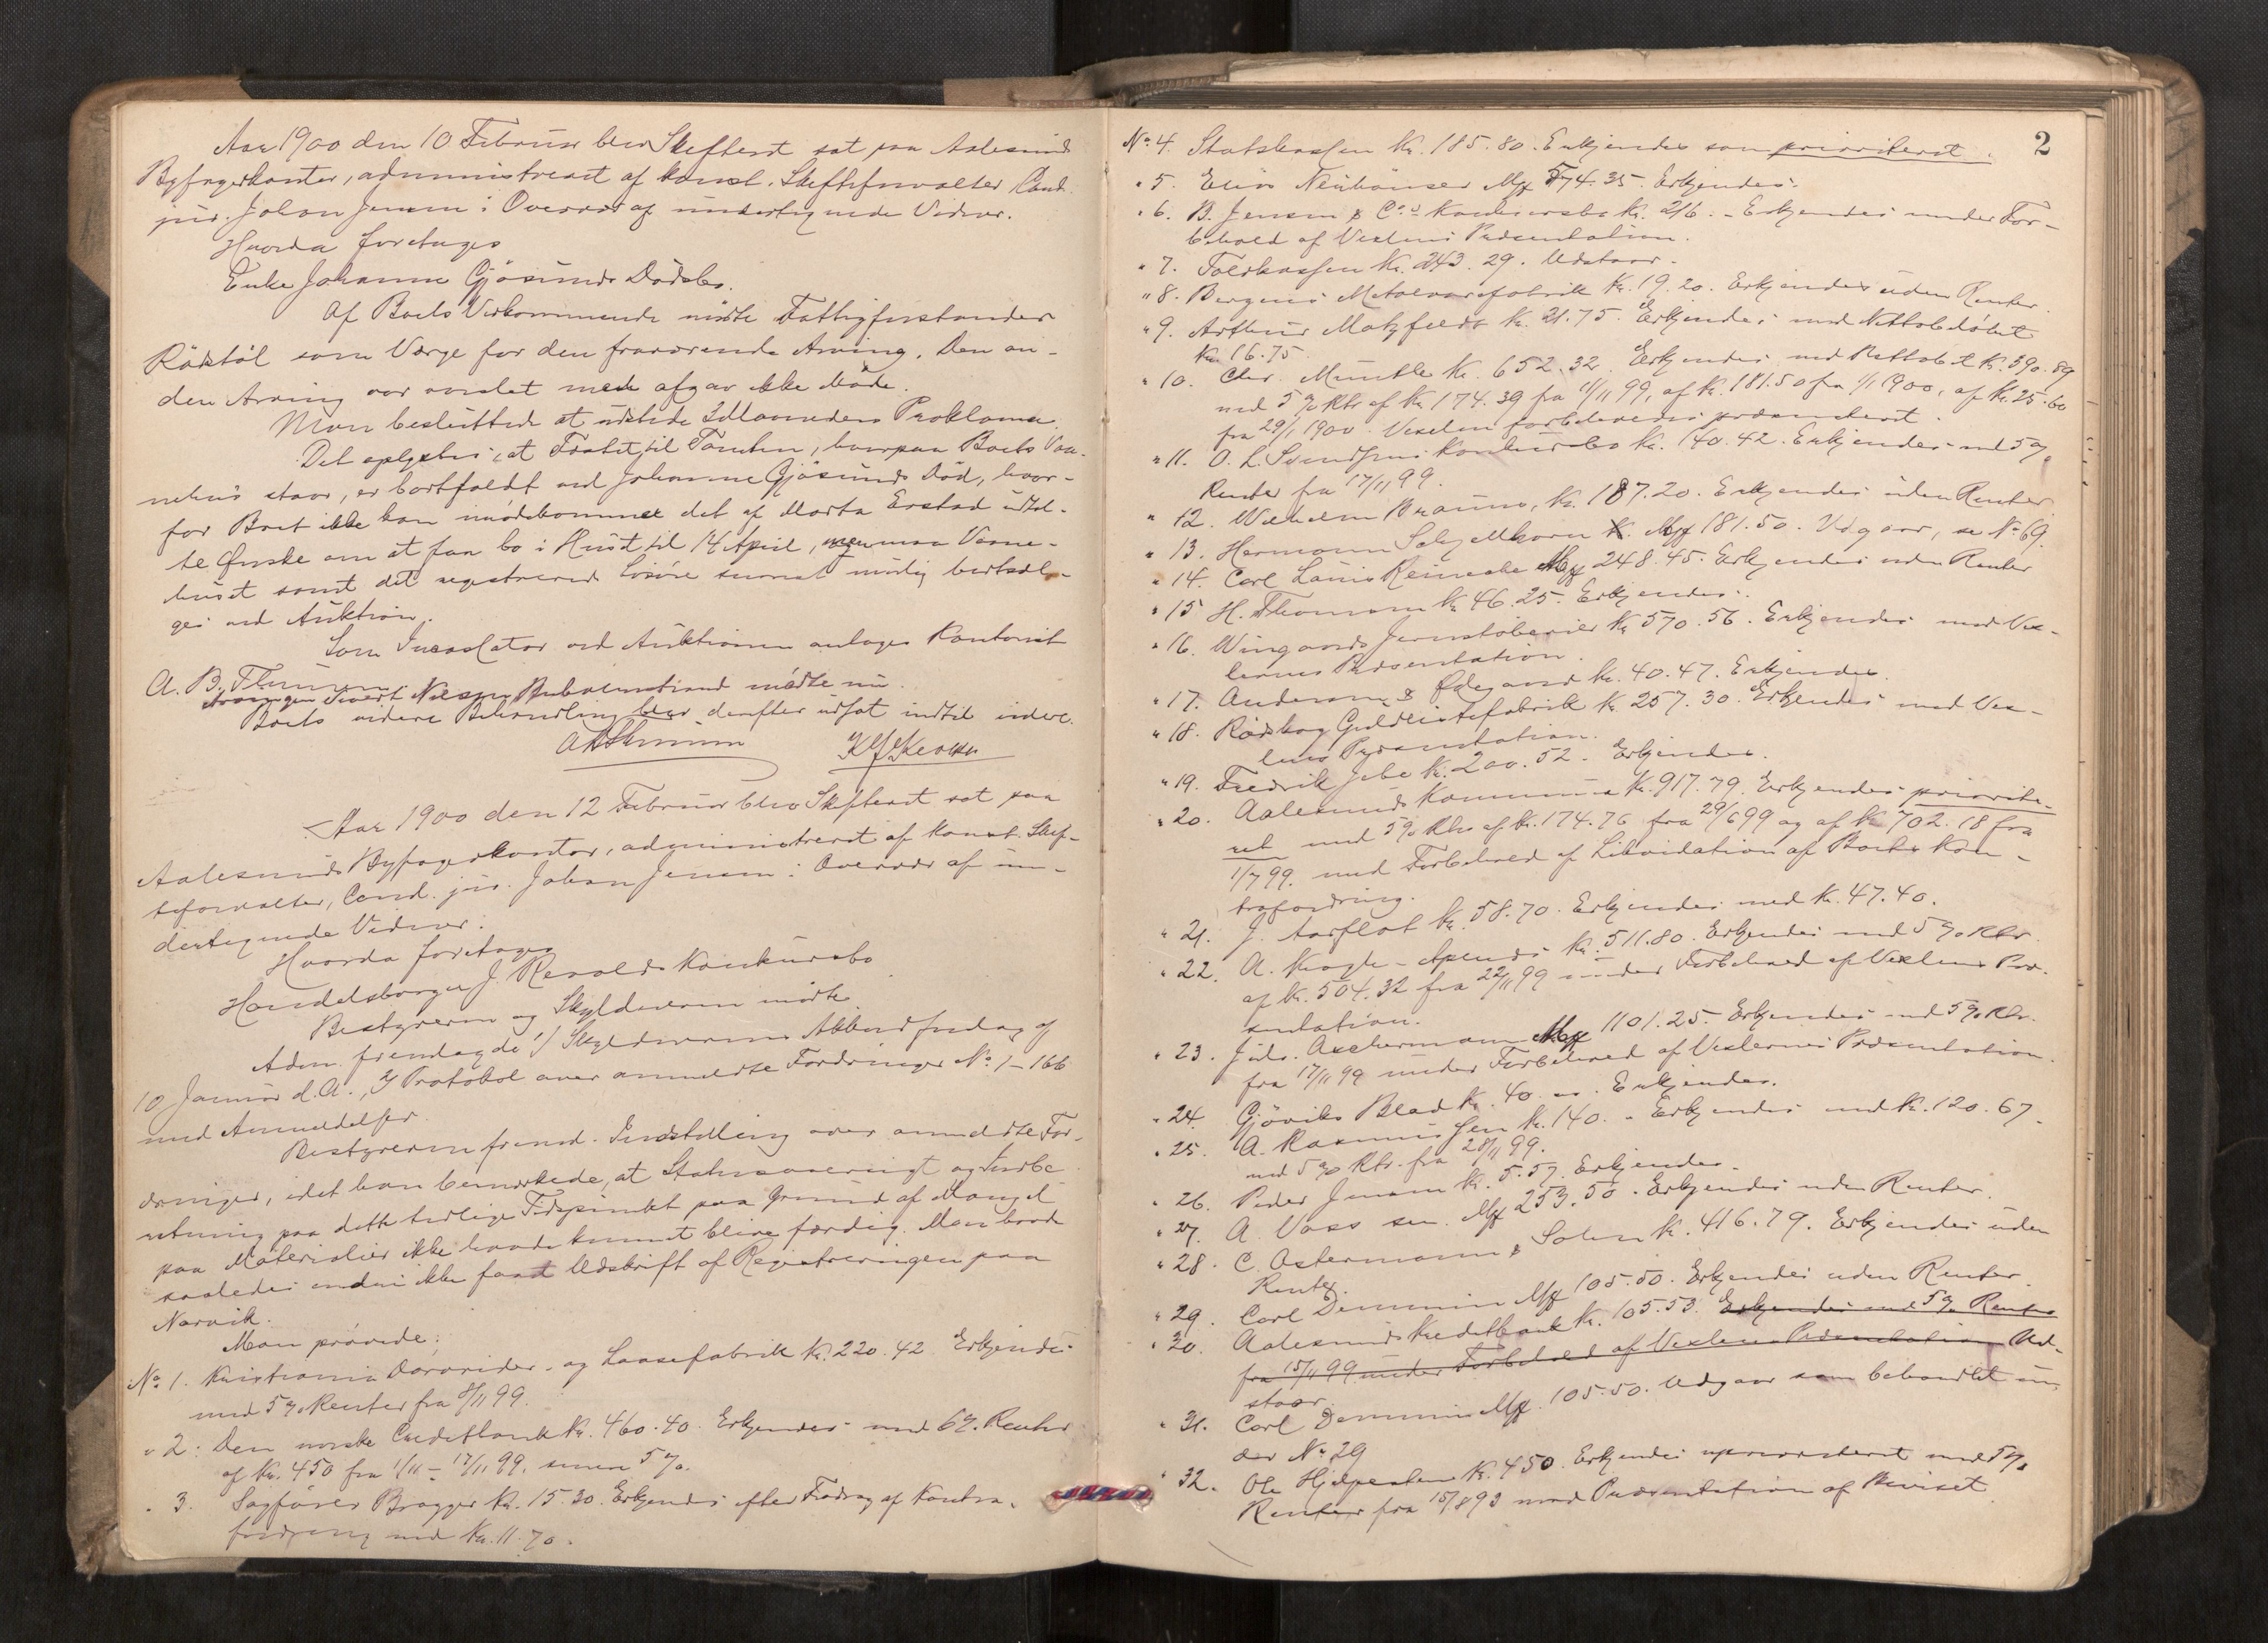 Aar 1900 den 10 Februar blev Skifteret sat paa Aalesunds
Byfogedkontor, administreret af konst. Skifteforvalter, Cand.
jur. Johan Jensen i Overvær af undertegnede Vidner.
Hvorda foretages
Enke Johanne Gjøsunds Dødsbo.
Af Boets Vedkommende mødte Fattigforstander
Rødstøl som Værge for den fraværende Arving. Den an-
den Arving var varslet men afgav ikke Møde.
Man besluttede at udstede Proklama.
Det oplystes, at Fæstet til Tomten, hvorpaa Boets Vaa-
nehus staar, er bortfaldt ved Johanne Gjøsunds Død, hvor-
for Boet ikke kan imødekomme det af Marta Erstad udtal-
te Ønske om at faa bo i Huset til 14 April, men maa Vaane-
huset samt det registrerede Løsøre snarest mulig bortsæl-
ges ved Auktion.
Som Incassator ved Auktionen antages Kontorist
A. B. Thunem.
Arvingen Sivert Nilsen mødte nu.
Boets videre Behandling blev derefter udsat indtil videre.
Aar 1900 den 12 Februar blev Skifteret sat paa
Aalesunds Byfogedkontor, administreret af konst. Skif-
teforvalter, Cand. jur. Johan Jensen i Overvær af un-
dertegnede Vidner.
Hvorda foretages
Handelsborger J. Revolds Konkursbo
Bestyreren og Skyldneren mødte.
Adm. fremlagde 1/ Skyldnerens Akkordforslag af
10 Januar d.A., 2/ Protokol over anmeldte Fordringer No 1-166
med Anmeldelser.
Bestyreren freml. Indstilling over anmeldte For-
dringer, idet han bemærkede, at Statusoversigt og Indbe-
retning paa dette tidlige Tidspunkt paa Grund af Mangel
paa Materialier ikke havde kunnet blive færdig. Man havde
saaledes endnu ikke faaet Udskrift af Registreringen paa
Narvik.
Man prøvede:
No 1. Kristiania Dørvrider- og Laasefabrik Kr. 220.42 Erkjendes
med 5% Renter fra 8/11 99.
" 2. Den norske Creditbank Kr. 460.40. Erkjendes med 6% Renter
af Kr. 450 fra 1/11 - 17/11 99, senere 5%.
" 3. Sagfører Brogger Kr. 15.30. Erkjendes efter Fradrag af Kontra-
fordring med Kr. 11.70.
2
No 4. Statskassen Kr. 185.80. Erkjendes som prioriteret.
" 5. Elias Neuhauser Mk 74.35. Erkjendes.
" 6. B. Jensen & Co's Konkursbo Kr. 216.- Erkjendes under For-
behold af Vexlens Præsentation.
" 7. Toldkassen Kr. 243.29. Udstaar.
" 8. Bergens Metalvarefabrik Kr. 19.20. Erkjendes uden Renter.
" 9. Arthur Motzfeldt Kr. 21.75. Erkjendes med Nettobeløbet
Kr. 16.75.
" 10. Chr. Munthe Kr. 652.32. Erkjendes med Restbel. Kr. 590.89
med 5% Rtr. af Kr. 174.39 fra 11/11 99, af Kr. 181.50 fra 1/1 1900, af Kr. 25.60
fra 29/1 1900. Vexelen præsenteret.
" 11. O. L. Svendsens Konkursbo Kr. 140.42. Erkjendes med 5%
Renter fra 17/11 99.
" 12. Wilhelm Brauns, Kr. 187.20. Erkjendes uden Renter
" 13. Hermann Schellhorn Mk 181.50. Udgaar, se No 69.
" 14. Carl Louis Reinecke Mk 248.45. Erkjendes uden Renter
" 15 H. Thomsen Kr. 46.25. Erkjendes.
" 16. Wingaards Jernstøberier Kr. 570.56. Erkjendes med Vex-
lernes Præsentation.
" 17. Andersen & Ødegaard Kr. 40.47. Erkjendes.
" 18. Rødskog Guldlistefabrik Kr. 257.30. Erkjendes med Vex-
lens Præsentation.
" 19. Fredrik Jebe Kr. 200.52. Erkjendes.
" 20. Aalesunds Kommune Kr. 917.79. Erkjendes priorite-
ret med 5% Rtr. af Kr. 174.76 fra 29/6 99 og af Kr. 702.18 fra
1/7 99. med Forbehold af Likvidation af Boets Kon-
trafordring.
" 21. J. Aarflot Kr. 58.70. Erkjendes med Kr. 47.40.
" 22. A. Kragh-Apenes Kr. 511.80. Erkjendes med 5% Rtr.
af Kr. 504.32 fra 22/11 99 under Forbehold af Vexlens Præ-
sentation.
" 23. Juls. Aschermann Mk 1101.25. Erkjendes med 5% Rtr.
fra 17/11 99 under Forbehold af Vexlernes Præsentation.
" 24. Gjøviks Blad Kr. 40.00. Erkjendes.
" 25. A. Rasmussen Kr. 140.- Erkjendes med Kr. 120.67
med 5% Rtr. fra 28/11 99.
" 26. Peder Jensen Kr. 5.57. Erkjendes.
" 27. A. Voss sen. Mk 253.50. Erkjendes uden Renter.
" 28. C. Ostermann & Sohn Kr. 416.79. Erkjendes uden
Renter.
" 29. Carl Demmin Mk 105.50. Erkjendes uden Renter.
" 30. Aalesunds Kreditbank Kr. 105.53. Erkjendes med 5% Renter
fra 15/11 99 under Forbehold af Vexlens Præsentation Ud-
staar.
" 31. Carl Demmin Mk. 105.50. Udgaar som behandlet un-
der No 29
" 32. Ole Hjelpesten Kr. 450. Erkjendes uprioriteret med 5%
Renter fra 15/8 93 mod Præsentation af Beviset